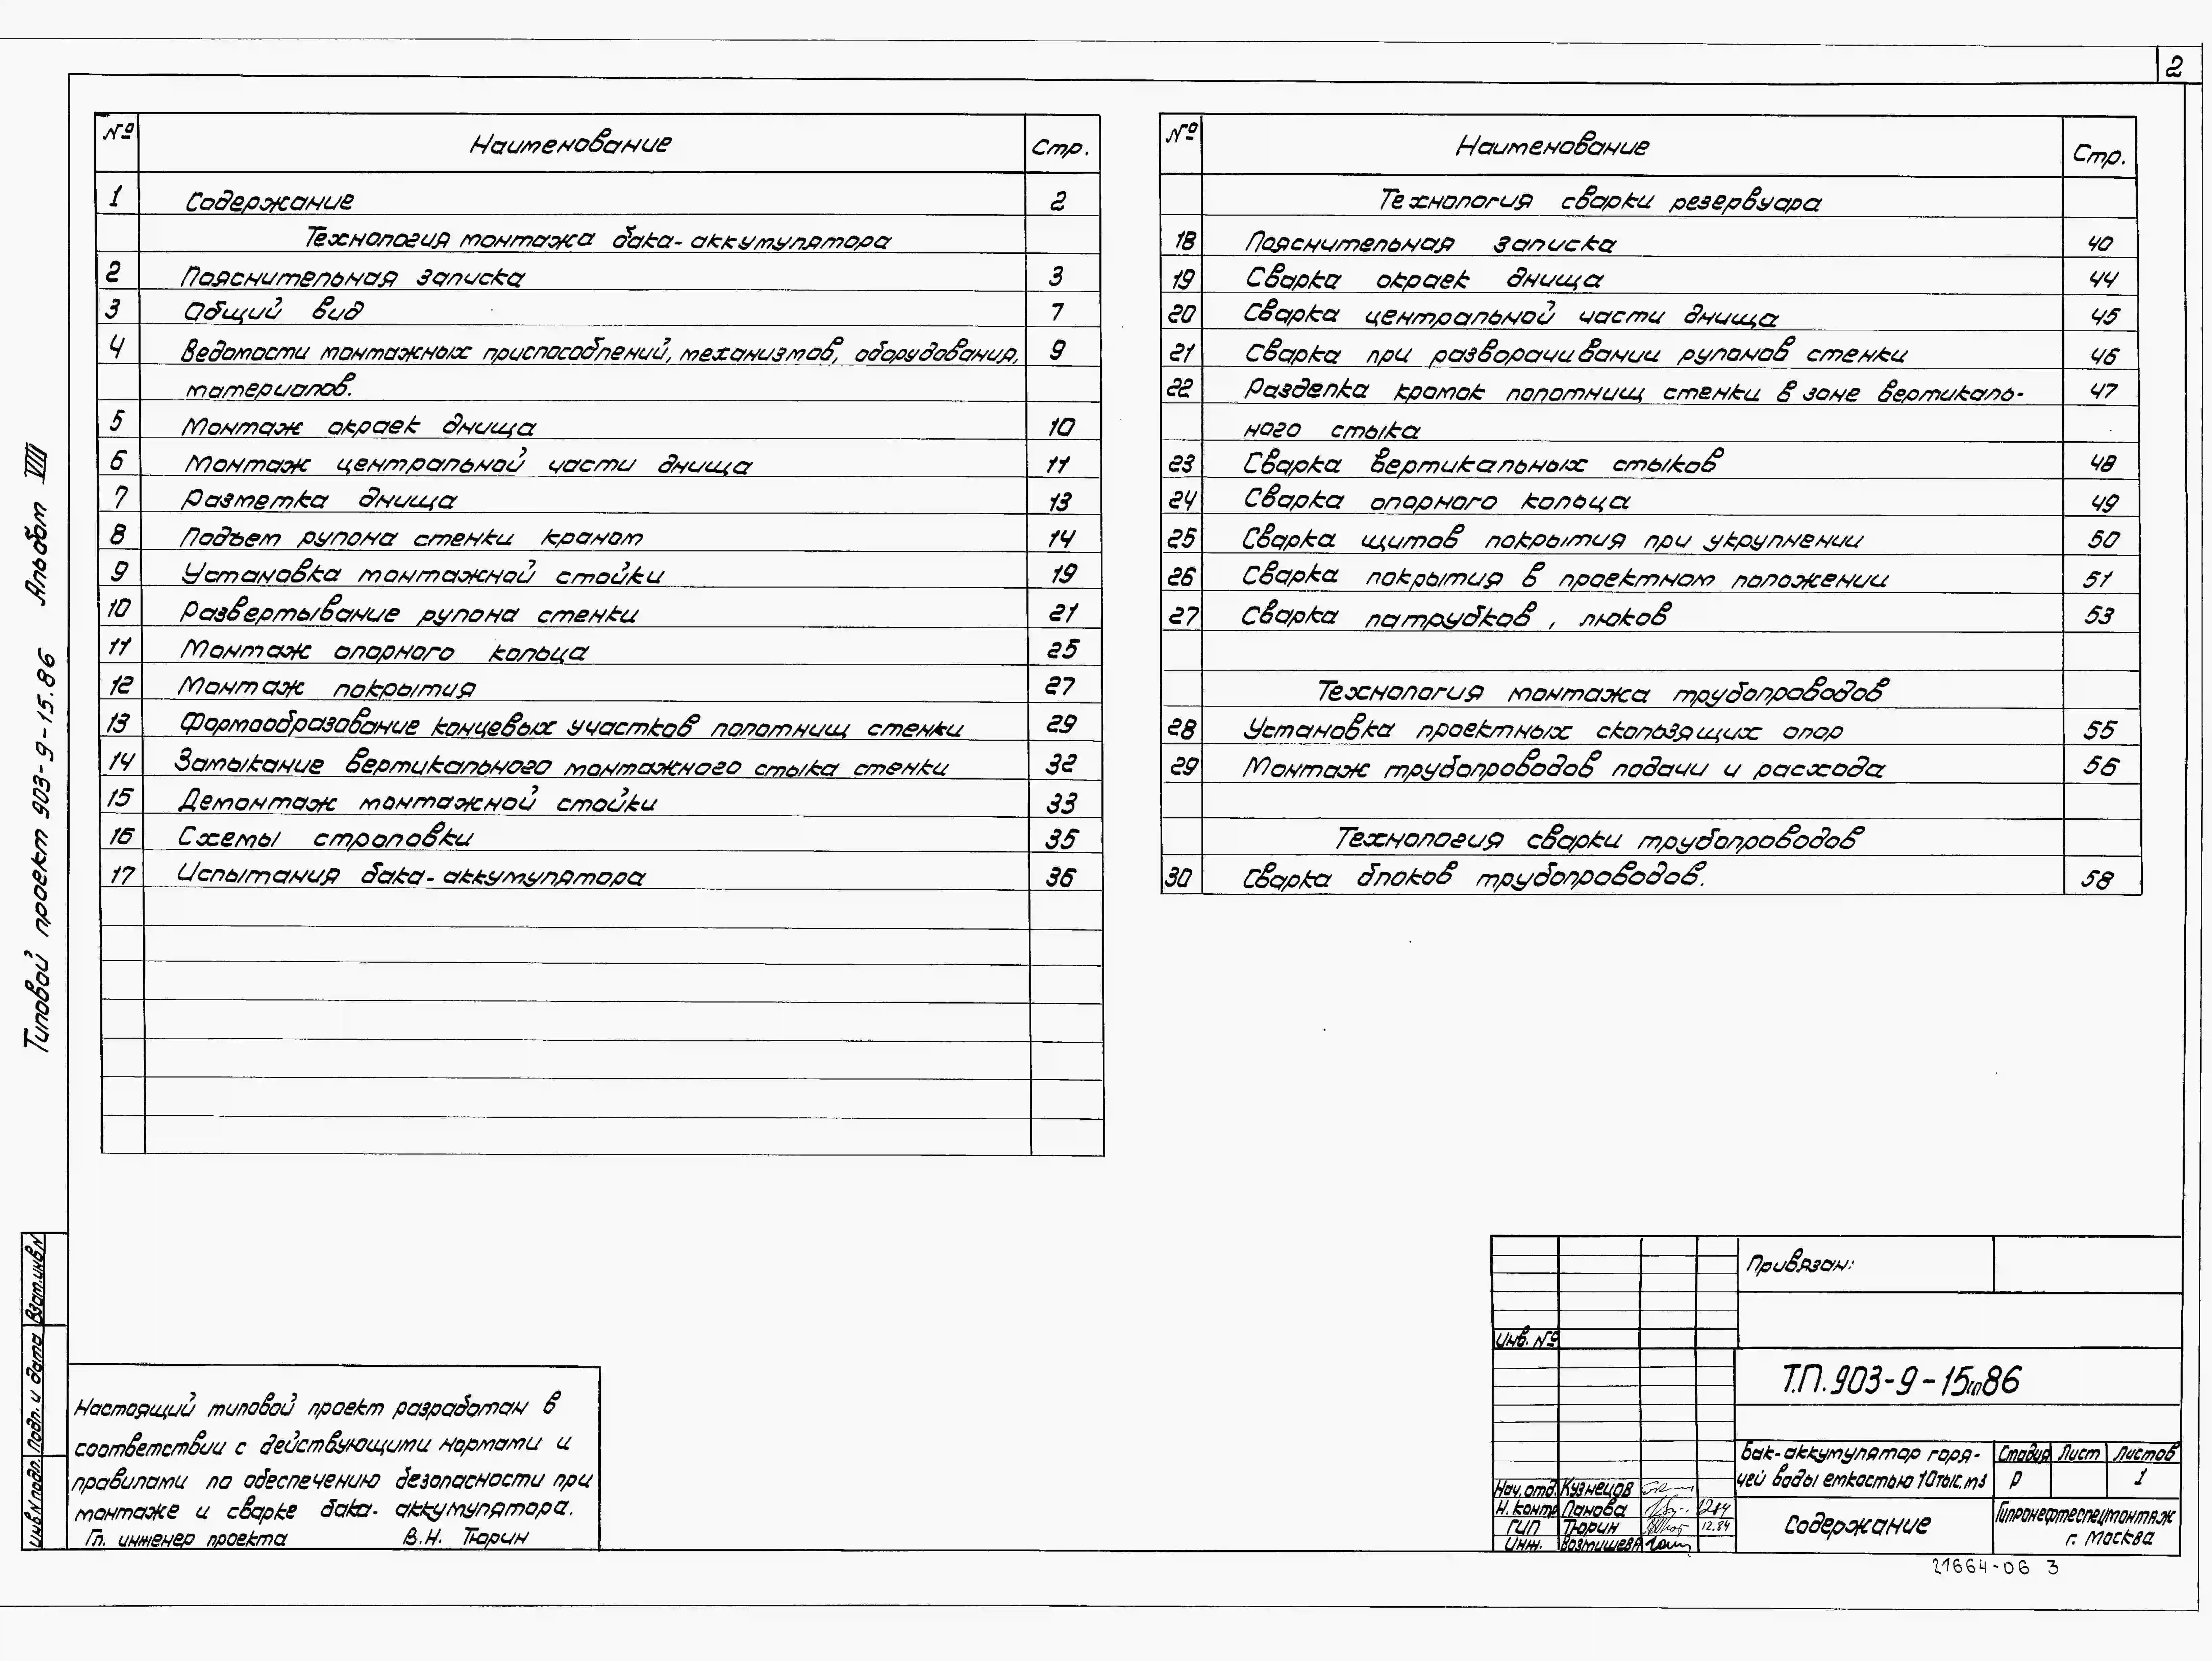 2
№ Наименование Стр.
1 Содержание 2
Технология монтажа бака-аккумулятора
2 Пояснительная записка 3
3 Общий вид 7
4 Ведомости монтажных приспособлений, механизмов, оборудования, 9
материалов.
5 Монтаж окраек днища 10
6 Монтаж центральной части днища 11
7 Разметка днища 13
8 Подъем рулона стенки краном 14
9 Установка монтажной стойки 19
10 Развертывание рулона стенки 21
11 Монтаж опорного кольца 25
12 Монтаж покрытия 27
13 Формообразование концевых участков полотнищ стенки 29
14 Замыкание вертикального монтажного стыка стенки 32
15 Демонтаж монтажной стойки 33
16 Схемы строповки 35
17 Испытания бака-аккумулятора 36
№ Наименование Стр.
Технология сварки резервуара
18 Пояснительная записка 40
19 Сварка окраек днища 44
20 Сварка центральной части днища 45
21 Сварка при разворачивании рулонов стенки 46
22 Разделка кромок полотнищ стенки в зоне вертикаль- 47
ного стыка
23 Сварка вертикальных стыков 48
24 Сварка опорного кольца 49
25 Сварка щитов покрытия при укрупнении 50
26 Сварка покрытия в проектном положении 51
27 Сварка патрубков, люков 53
Технология монтажа трубопроводов
28 Установка проектных скользящих опор 55
29 Монтаж трубопроводов подачи и расхода 56
Технология сварки трубопроводов
30 Сварка блоков трубопроводов. 58
Типовой проект 903-9-15.86 Альбом VIII
Инв.N подл. Подп. и дата Взам.инв.N
Настоящий типовой проект разработан в
соответствии с действующими нормами и
правилами по обеспечению безопасности при
монтаже и сварке бака-аккумулятора.
Гл. инженер проекта В.Н. Тюрин
Привязан:
Инв. №
Т.П. 903-9-15 86
Бак-аккумулятор горя-
чей воды емкостью 10тыс.м3
Стадия Лист Листов
Р 1
Нач. отд. Кузнецов
Н. контр Панова 12.84
ГИП Тюрин 12.84
Инж.
Содержание
Гипронефтеспецмонтаж
г. Москва
21664-06 3